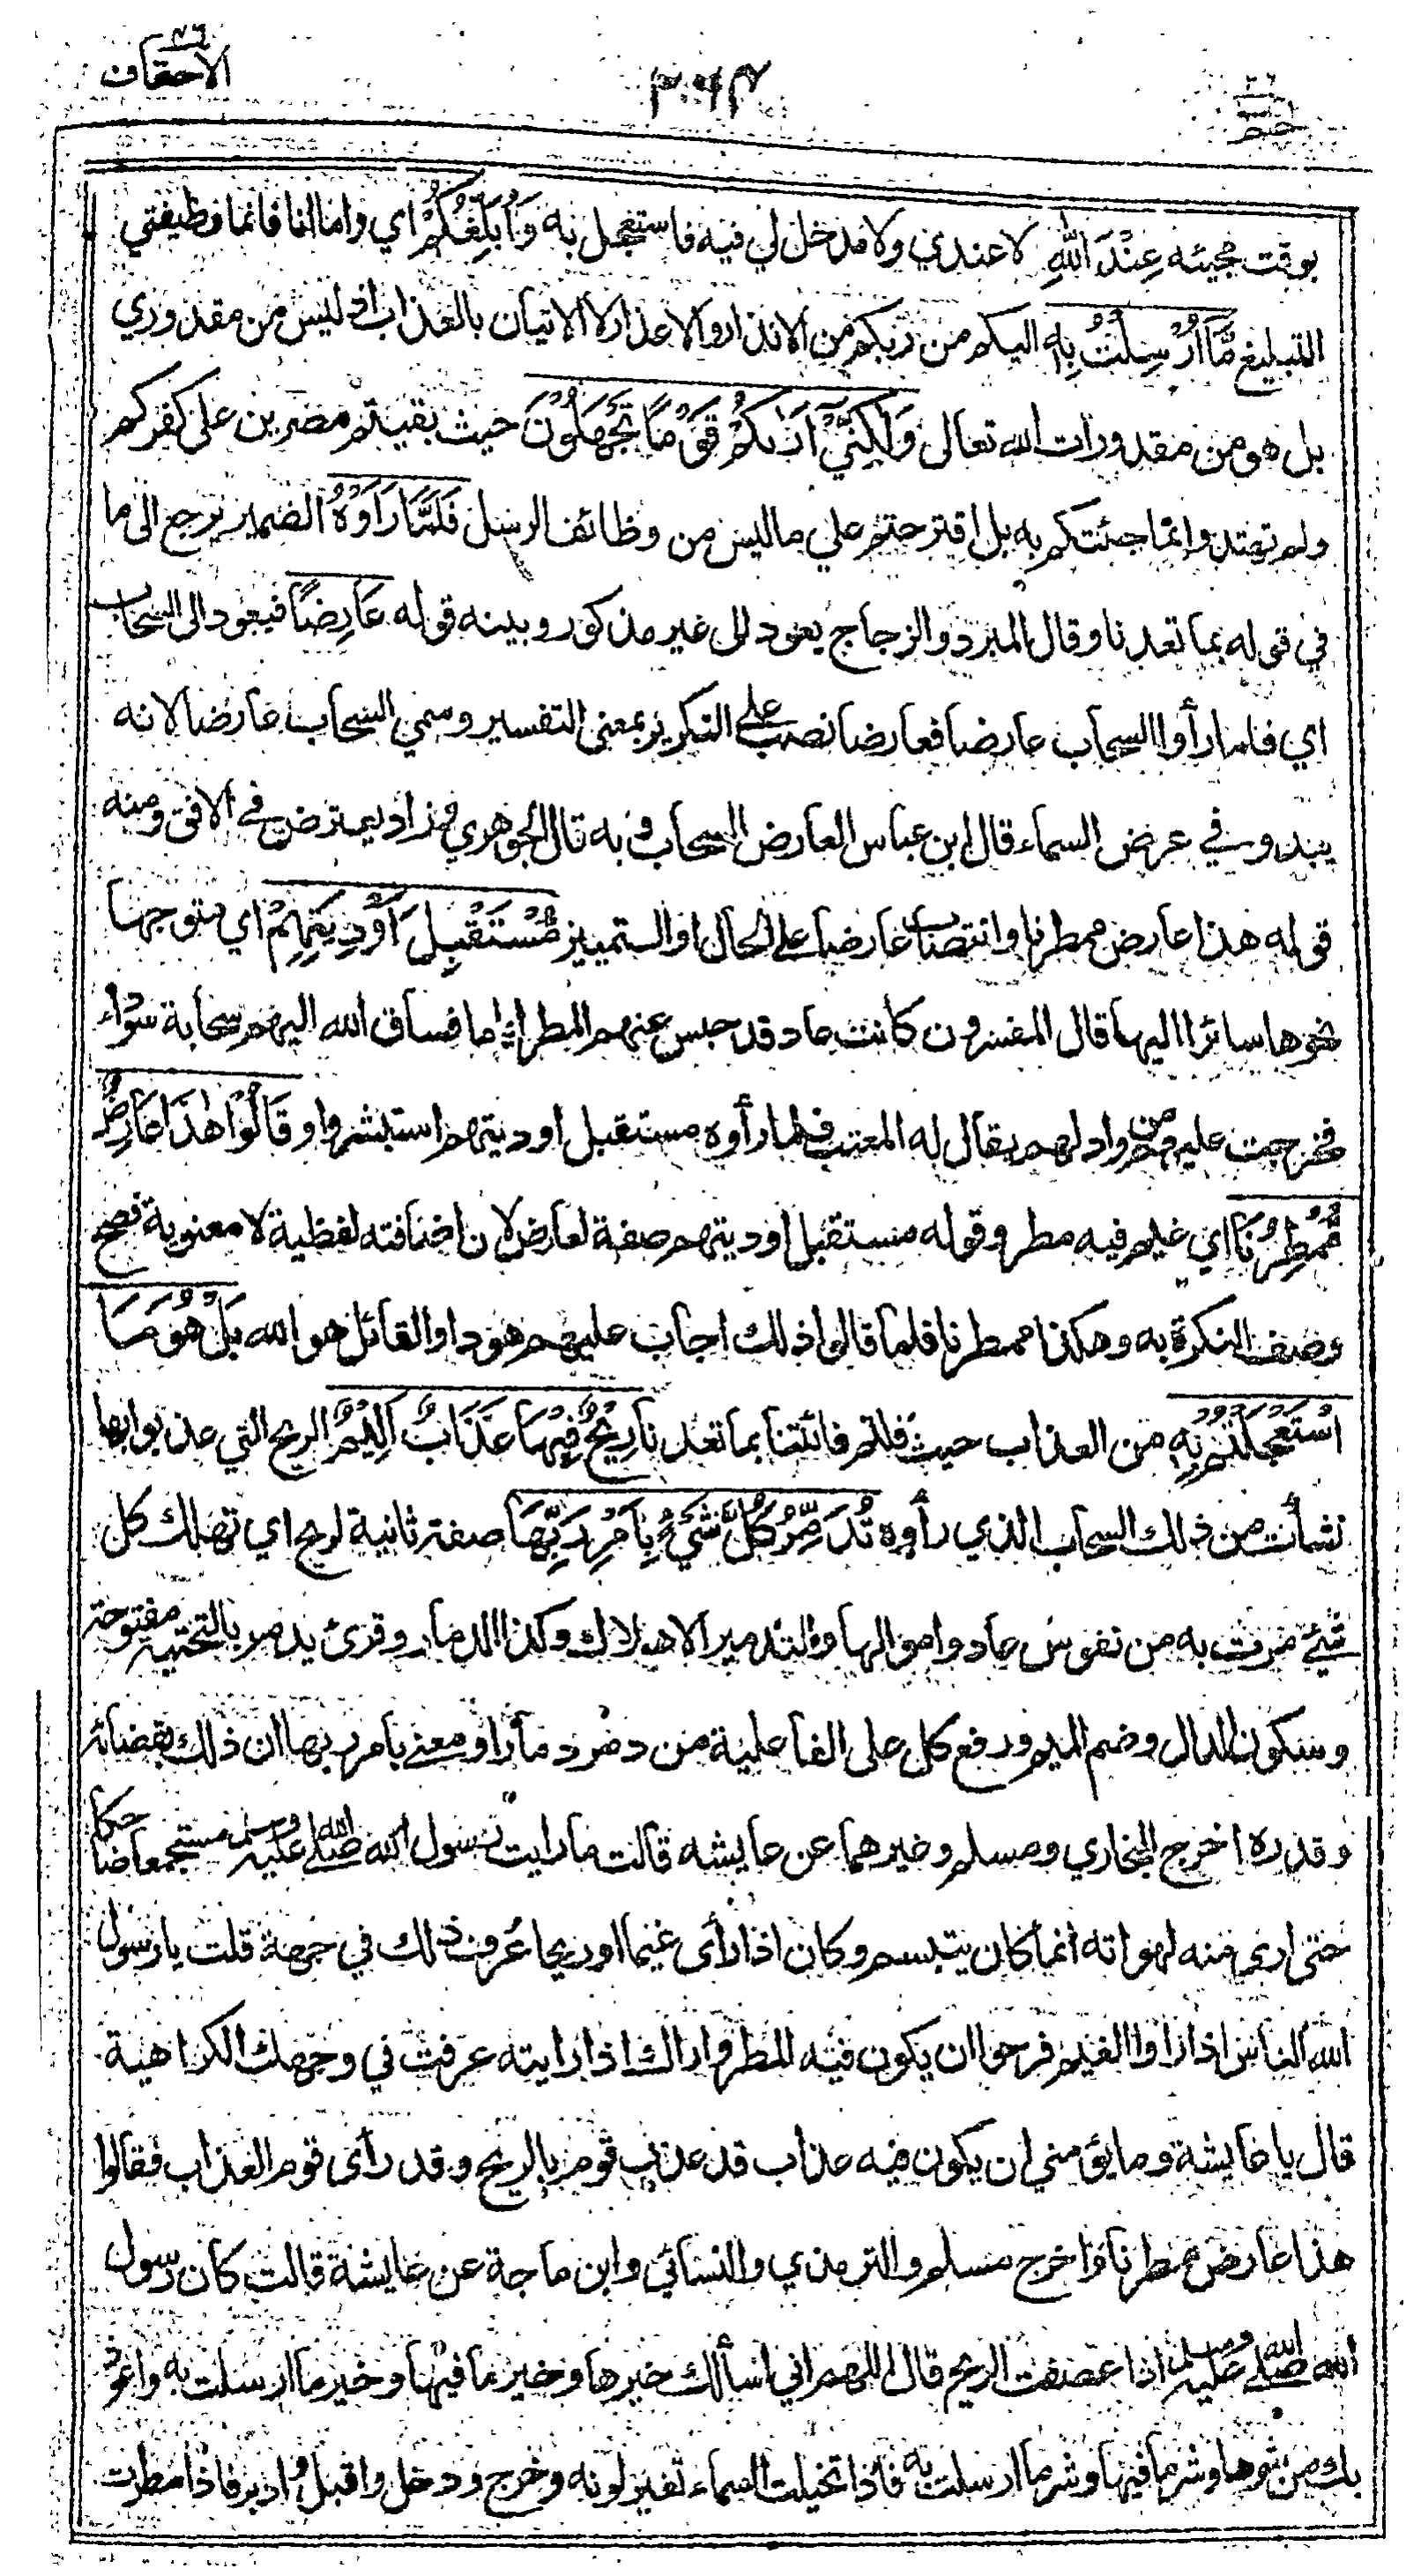 حم ٢٦
٣٠٦٤
الاحقاف ٤٦
بوقت مجيئه عِنْدَ اللّٰهِ لا عندي ولا مدخل لي فيه فاستعجل به وَاُبَلِّغُكُمْ اي واما انا فانما وظيفتي
التبليغ مَّآ اُرْسِلْتُ بِهٖ اليكم من ربكم من الانذار والاعذار لا الاتيان بالعذاب اذ ليس من مقدوري
بل هو من مقدورات الله تعالى وَلٰكِنِّيْٓ اَرٰىكُمْ قَوْمًا تَجْهَلُوْنَ حيث بقيتم مصرين على كفركم
ولم تهتدوا بما جئتكم به بل اقترحتم علي ما ليس من وظائف الرسل فَلَمَّا رَاَوْهُ الضمير يرجع الى ما
في قوله بما تعدنا وقال المبرد والزجاج يعود الى غير مذكور وبينه قوله عَارِضًا فيعود الى السحاب
اي فلما رأوا السحاب عارضا فعارضا نصب على التكرير بمعنى التفسير وسمي السحاب عارضا لانه
يبدو في عرض السماء قال ابن عباس العارض السحاب وبه قال الجوهري وزاد يعترض في الافق ومنه
قوله هذا عارض ممطرنا وانتصاب عارضا على الحال او التمييز مُّسْتَقْبِلَ اَوْدِيَتِهِمْ اي متوجها
نحوها سائرا اليها قال المفسرون كانت عاد قد حبس عنهم المطر اياما فساق الله اليهم سحابة سوداء
فخرجت عليهم من واد لهم يقال له المعتب فلما رأوه مستقبل اوديتهم استبشروا وقَالُوْا هٰذَا عَارِضٌ
مُّمْطِرُنَا اي غيم فيه مطر وقوله مستقبل اوديتهم صفة لعارض لان اضافته لفظية لا معنوية فصح
وصف النكرة به وهكذا ممطرنا فلما قالوا ذلك اجاب عليهم هود او القائل هو الله بَلْ هُوَ مَا
اسْتَعْجَلْتُمْ بِهٖ من العذاب حيث قلتم فائتنا بما تعدنا رِيْحٌ فِيْهَا عَذَابٌ اَلِيْمٌ الريح التي عذبوا بها
نشأت من ذلك السحاب الذي رأوه تُدَمِّرُ كُلَّ شَيْءٍ بِاَمْرِ رَبِّهَا صفة ثانية لريح اي تهلك كل
شيئ مرت به من نفوس عاد واموالها والتدمير الاهلاك وكذا الدمار وقرئ يدمر بالتحتية مفتوحة
وسكون الدال وضم الميم ورفع كل على الفاعلية من دمر دمارا ومعنى بامر ربها ان ذلك بقضائه
وقدره اخرج البخاري ومسلم وغيرهما عن عايشه قالت ما رايت رسول الله صلى الله عليه وسلم مستجمعا ضاحكا
حتى ارى منه لهواته انما كان يتبسم وكان اذا رأى غيما او ريحا عرف ذلك في وجهه قلت يا رسول
الله الناس اذا راوا الغيم فرحوا ان يكون فيه المطر واراك اذا رايته عرفت في وجهك الكراهية
قال يا عايشة وما يؤمنني ان يكون فيه عذاب قد عذب قوم بالريح وقد رأى قوم العذاب فقالوا
هذا عارض ممطرنا واخرج مسلم والترمذي والنسائي وابن ماجة عن عايشة قالت كان رسول
الله صلى الله عليه وسلم اذا عصفت الريح قال اللهم اني اسألك خيرها وخير ما فيها وخير ما ارسلت به واعوذ
بك من شرها وشر ما فيها وشر ما ارسلت به فاذا تخيلت السماء تغير لونه وخرج ودخل واقبل وادبر فاذا مطرت